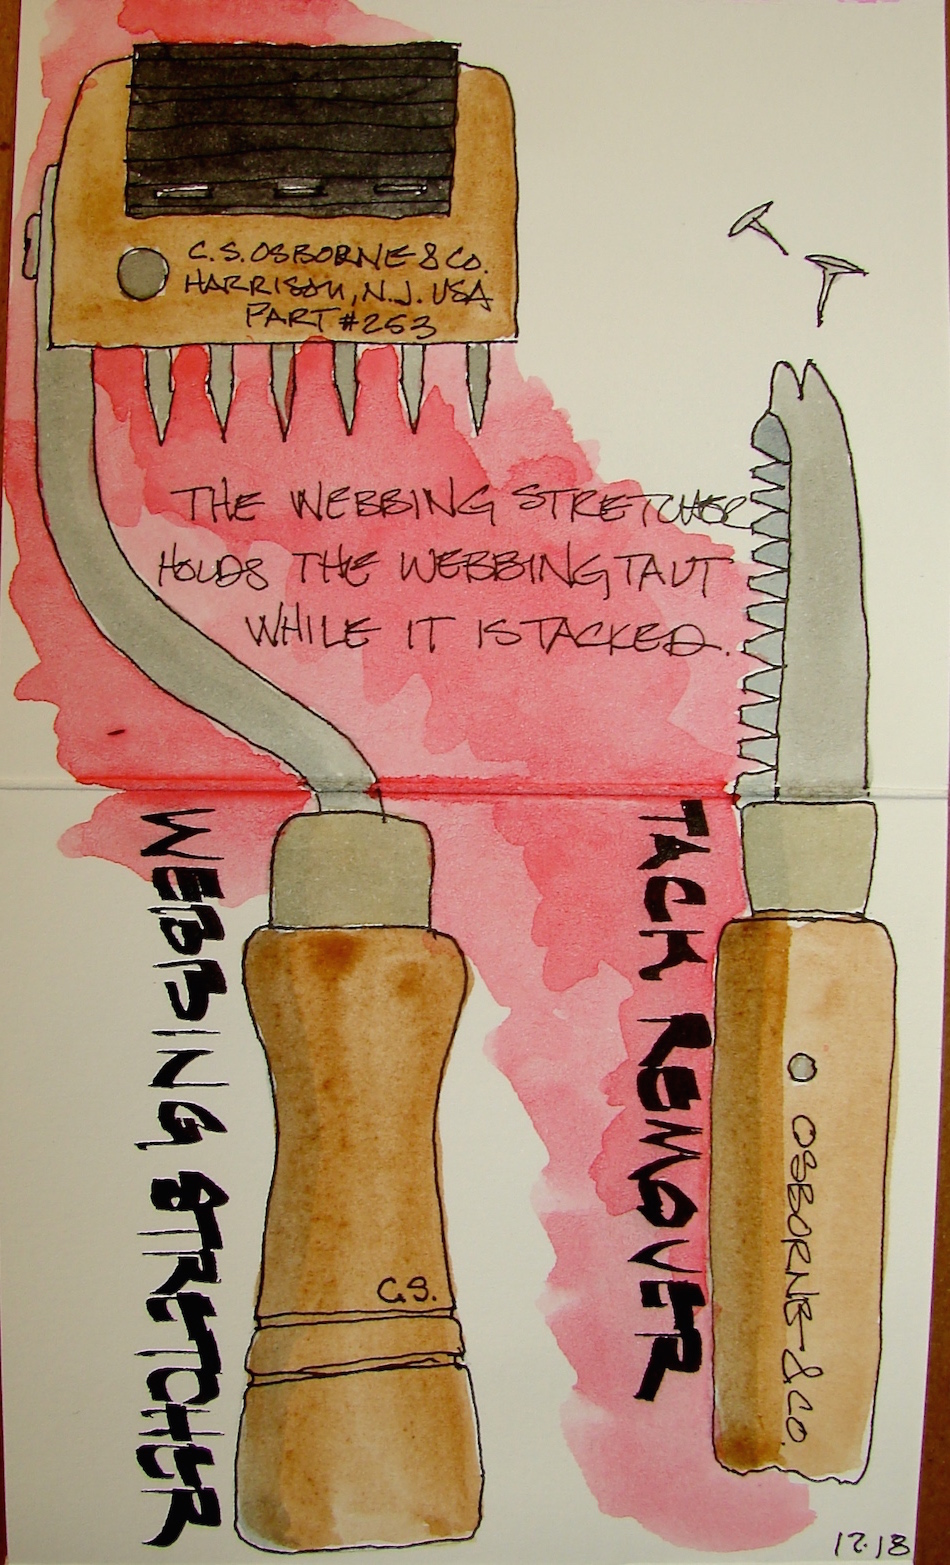 C.S. OSBORNE & CO.
HARRISON, N.J. USA
PART #253
THE WEBBING STRETCHER
HOLDS THE WEBBING TAUT
WHILE IT IS TACKED.
WEBBING STRETCHER
TACK REMOVER
C.S.
OSBORNE & CO.
12.18